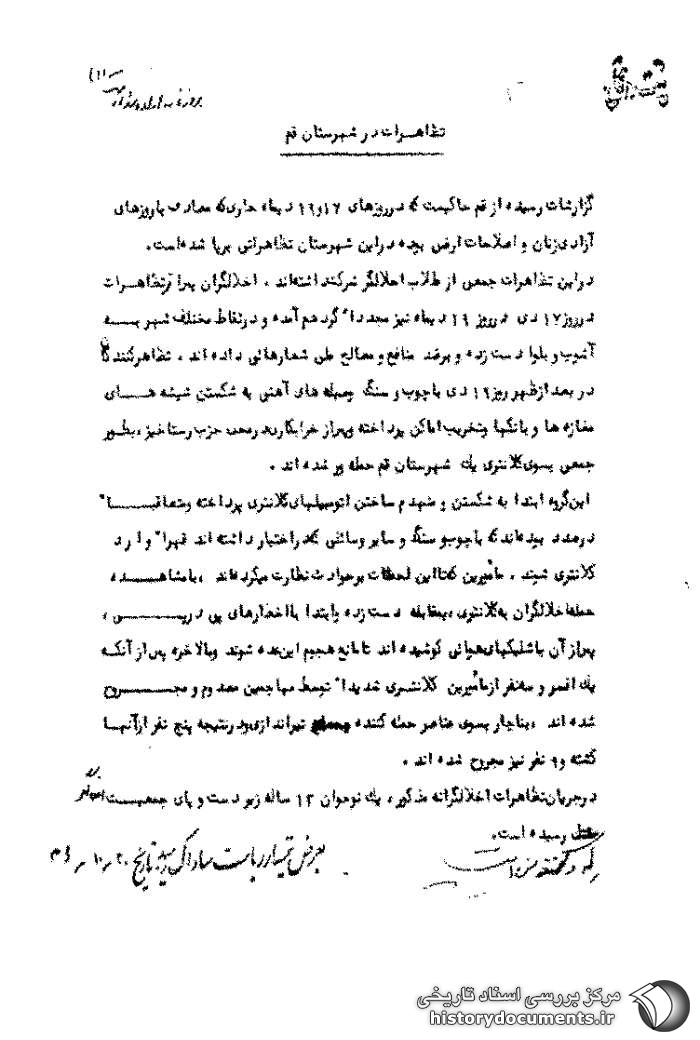 (۱۱
تظاهرات در شهرستان قم
گزارشات رسیده از قم حاکیست که در روزهای ۱۷ و ۱۹ دیماه جاری که مصادف با روزهای
آزادی زنان و اصلاحات ارضی بوده در این شهرستان تظاهراتی برپا شده است.
در این تظاهرات جمعی از طلاب اخلالگر شرکت داشته‌اند . اخلالگران پس از تظاهرات
در روز ۱۷ دی در روز ۱۹ دیماه نیز مجددا" گردهم آمده و در نقاط مختلف شهر به
آشوب و بلوا دست زده و بر ضد منافع و مصالح ملی شعارهائی داده اند . تظاهرکنندگان
در بعد از ظهر روز ۱۹ دی با چوب و سنگ و میله های آهنی به شکستن شیشه های
مغازه ها و بانکها و تخریب اماکن پرداخته و پس از خرابکاری در محل حزب رستاخیز ، بطور
جمعی بسوی کلانتری یک شهرستان قم حمله ور شده اند .
این گروه ابتدا به شکستن و منهدم ساختن اتومبیلهای کلانتری پرداخته و متعاقبا"
درصدد بوده‌اند که با چوب و سنگ و سایر وسائلی که در اختیار داشته اند قهرا" وارد
کلانتری شوند . مأمورین که تا این لحظات بر حوادث نظارت میکرده‌اند ، با مشاهده
حمله اخلالگران به کلانتری ، بمقابله دست زده و ابتدا با اخطارهای پی در پی ،
پس از آن با شلیکهای هوائی کوشیده اند تا مانع هجوم این عده شوند و بالاخره پس از آنکه
یک افسر و سه نفر از مأمورین کلانتری شدیدا" توسط مهاجمین مصدوم و مجروح
شده اند ، بناچار بسوی عناصر حمله کننده تیراندازی و در نتیجه پنج نفر از آنها
کشته و ۹ نفر نیز مجروح شده اند .
در جریان تظاهرات اخلالگرانه مذکور ، یک نوجوان ۱۳ ساله زیر دست و پای جمعیت
بقتل رسیده است.
بعرض تیمسار ریاست ساواک رسید. تاریخ ۲۰-۱۰-۳۶
مرکز بررسی اسناد تاریخی
historydocuments.ir